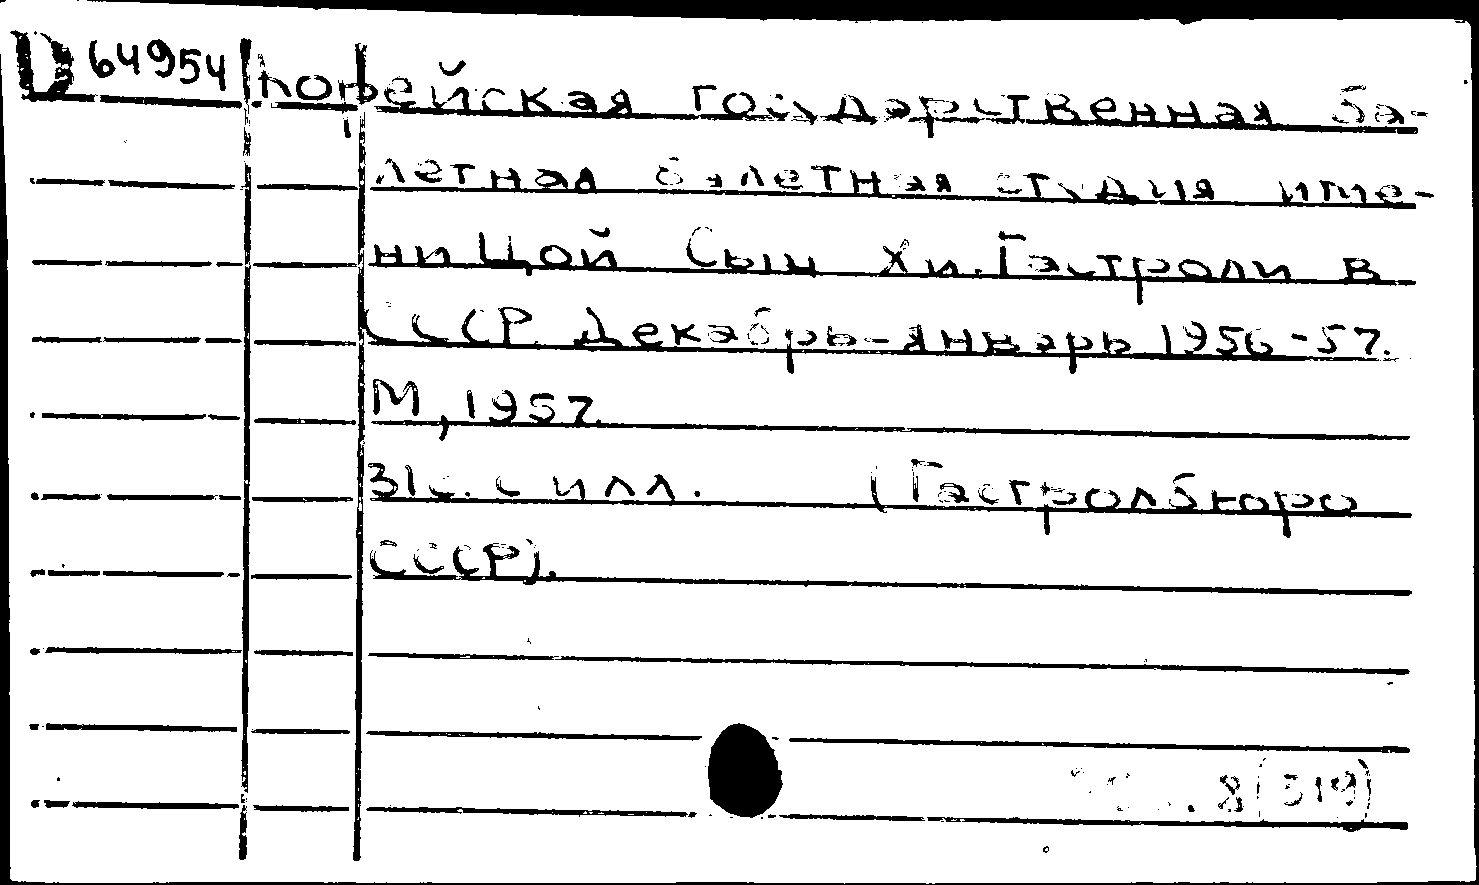 D 64954 Корейская государственная ба-
летная балетная студия име-
ни Цой Сын Хи. Гастроли в
СССР. Декабрь-январь 1956-57.
М, 1957.
31с. с илл. (Гастрольбюро
СССР).
8(519)